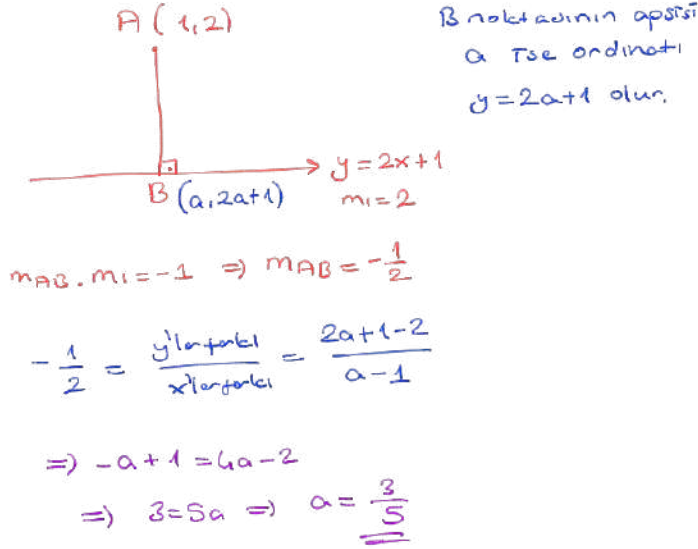 A(1,2)
B noktasının apsisi
a ise ordinatı
y=2a+1 olur.
y=2x+1
B(a,2a+1)
m₁=2
mAB.m₁=-1 ⇒ mAB=-1/2
-1/2 = y'ler farkı/x'ler farkı = 2a+1-2/a-1
⇒ -a+1=4a-2
⇒ 3=5a ⇒ a=3/5